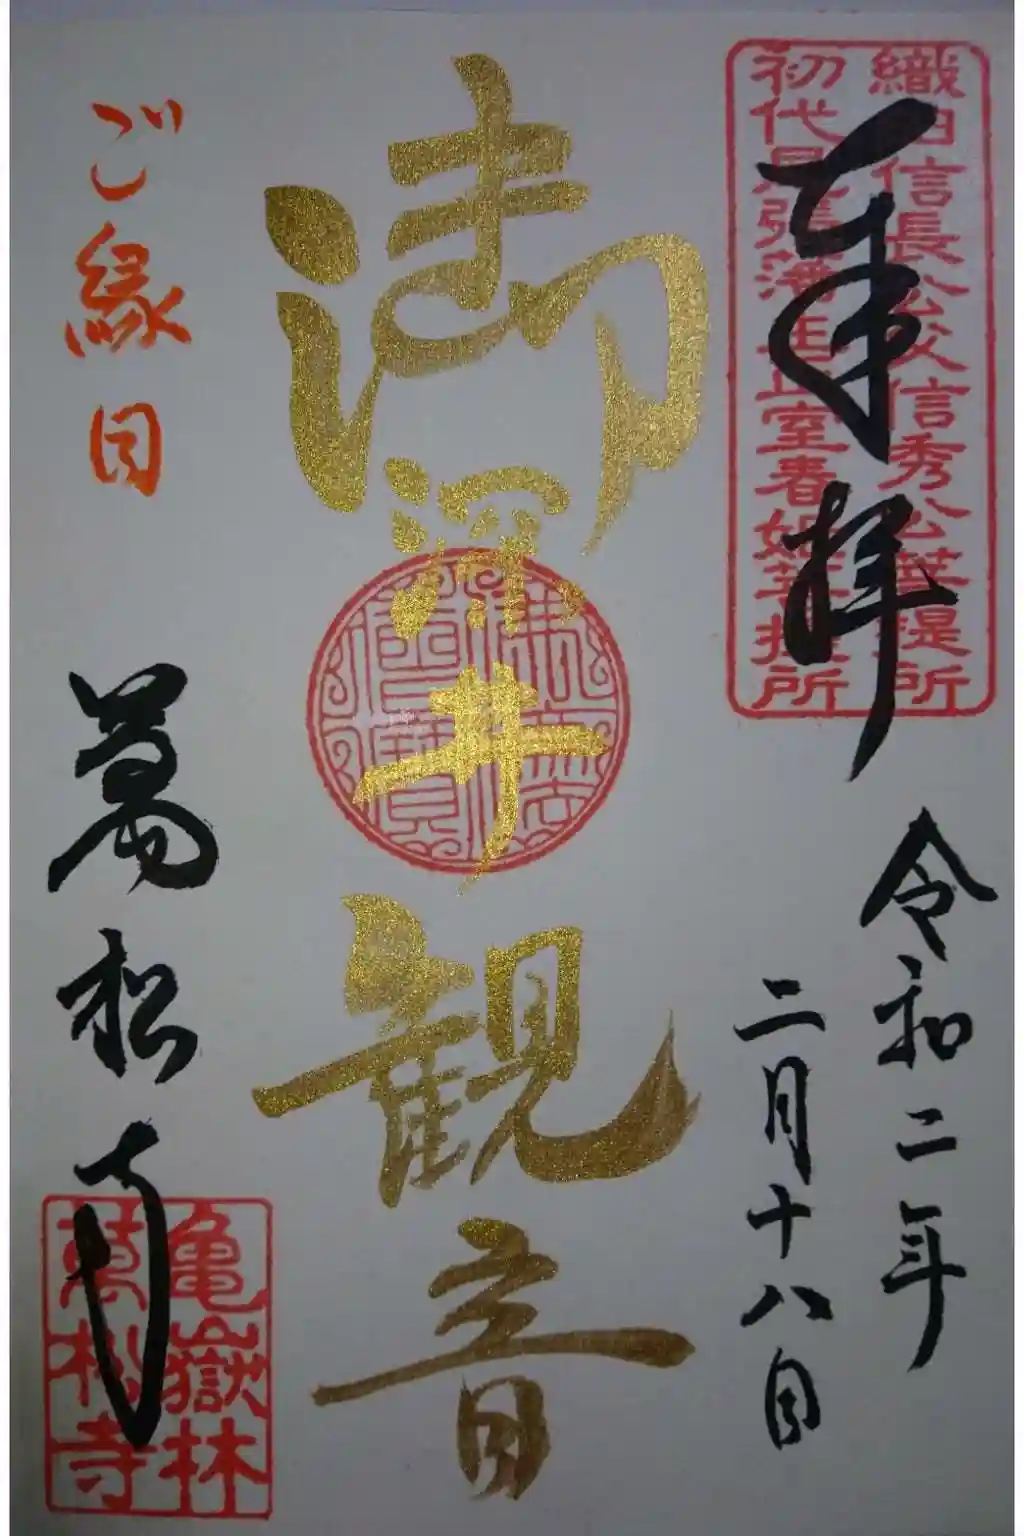 織田信長公父信秀公菩提所
初代尾張藩主正室春姫菩提所
奉拝
令和二年
二月十八日
御深井観音
ご縁日
萬松寺
亀嶽林
萬松寺